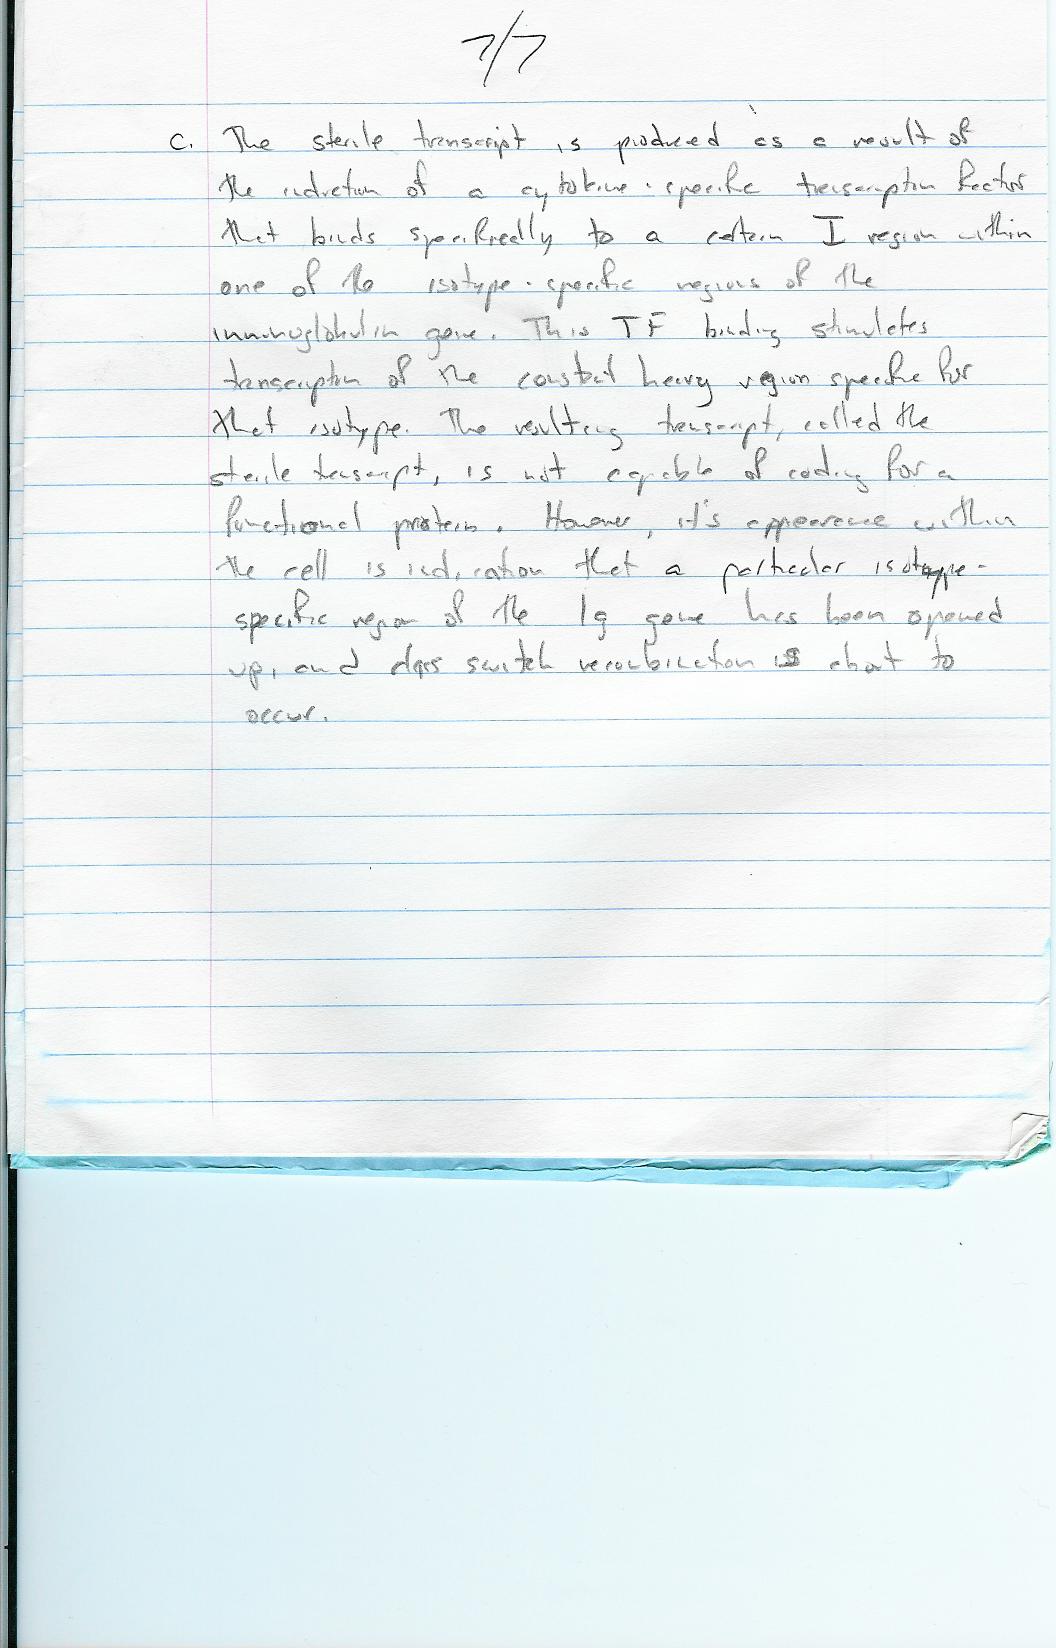 7/7
c. The sterile transcript is produced as a result of
the induction of a cytokine-specific transcription factor
that binds specifically to a certain I region within
one of the isotype-specific regions of the
immunoglobulin gene. This TF binding stimulates
transcription of the constant heavy region specific for
that isotype. The resulting transcript, called the
sterile transcript, is not capable of coding for a
functional protein. However, it's appearance within
the cell is indication that a particular isotype-
specific region of the Ig gene has been opened
up, and class switch recombination is about to
occur.